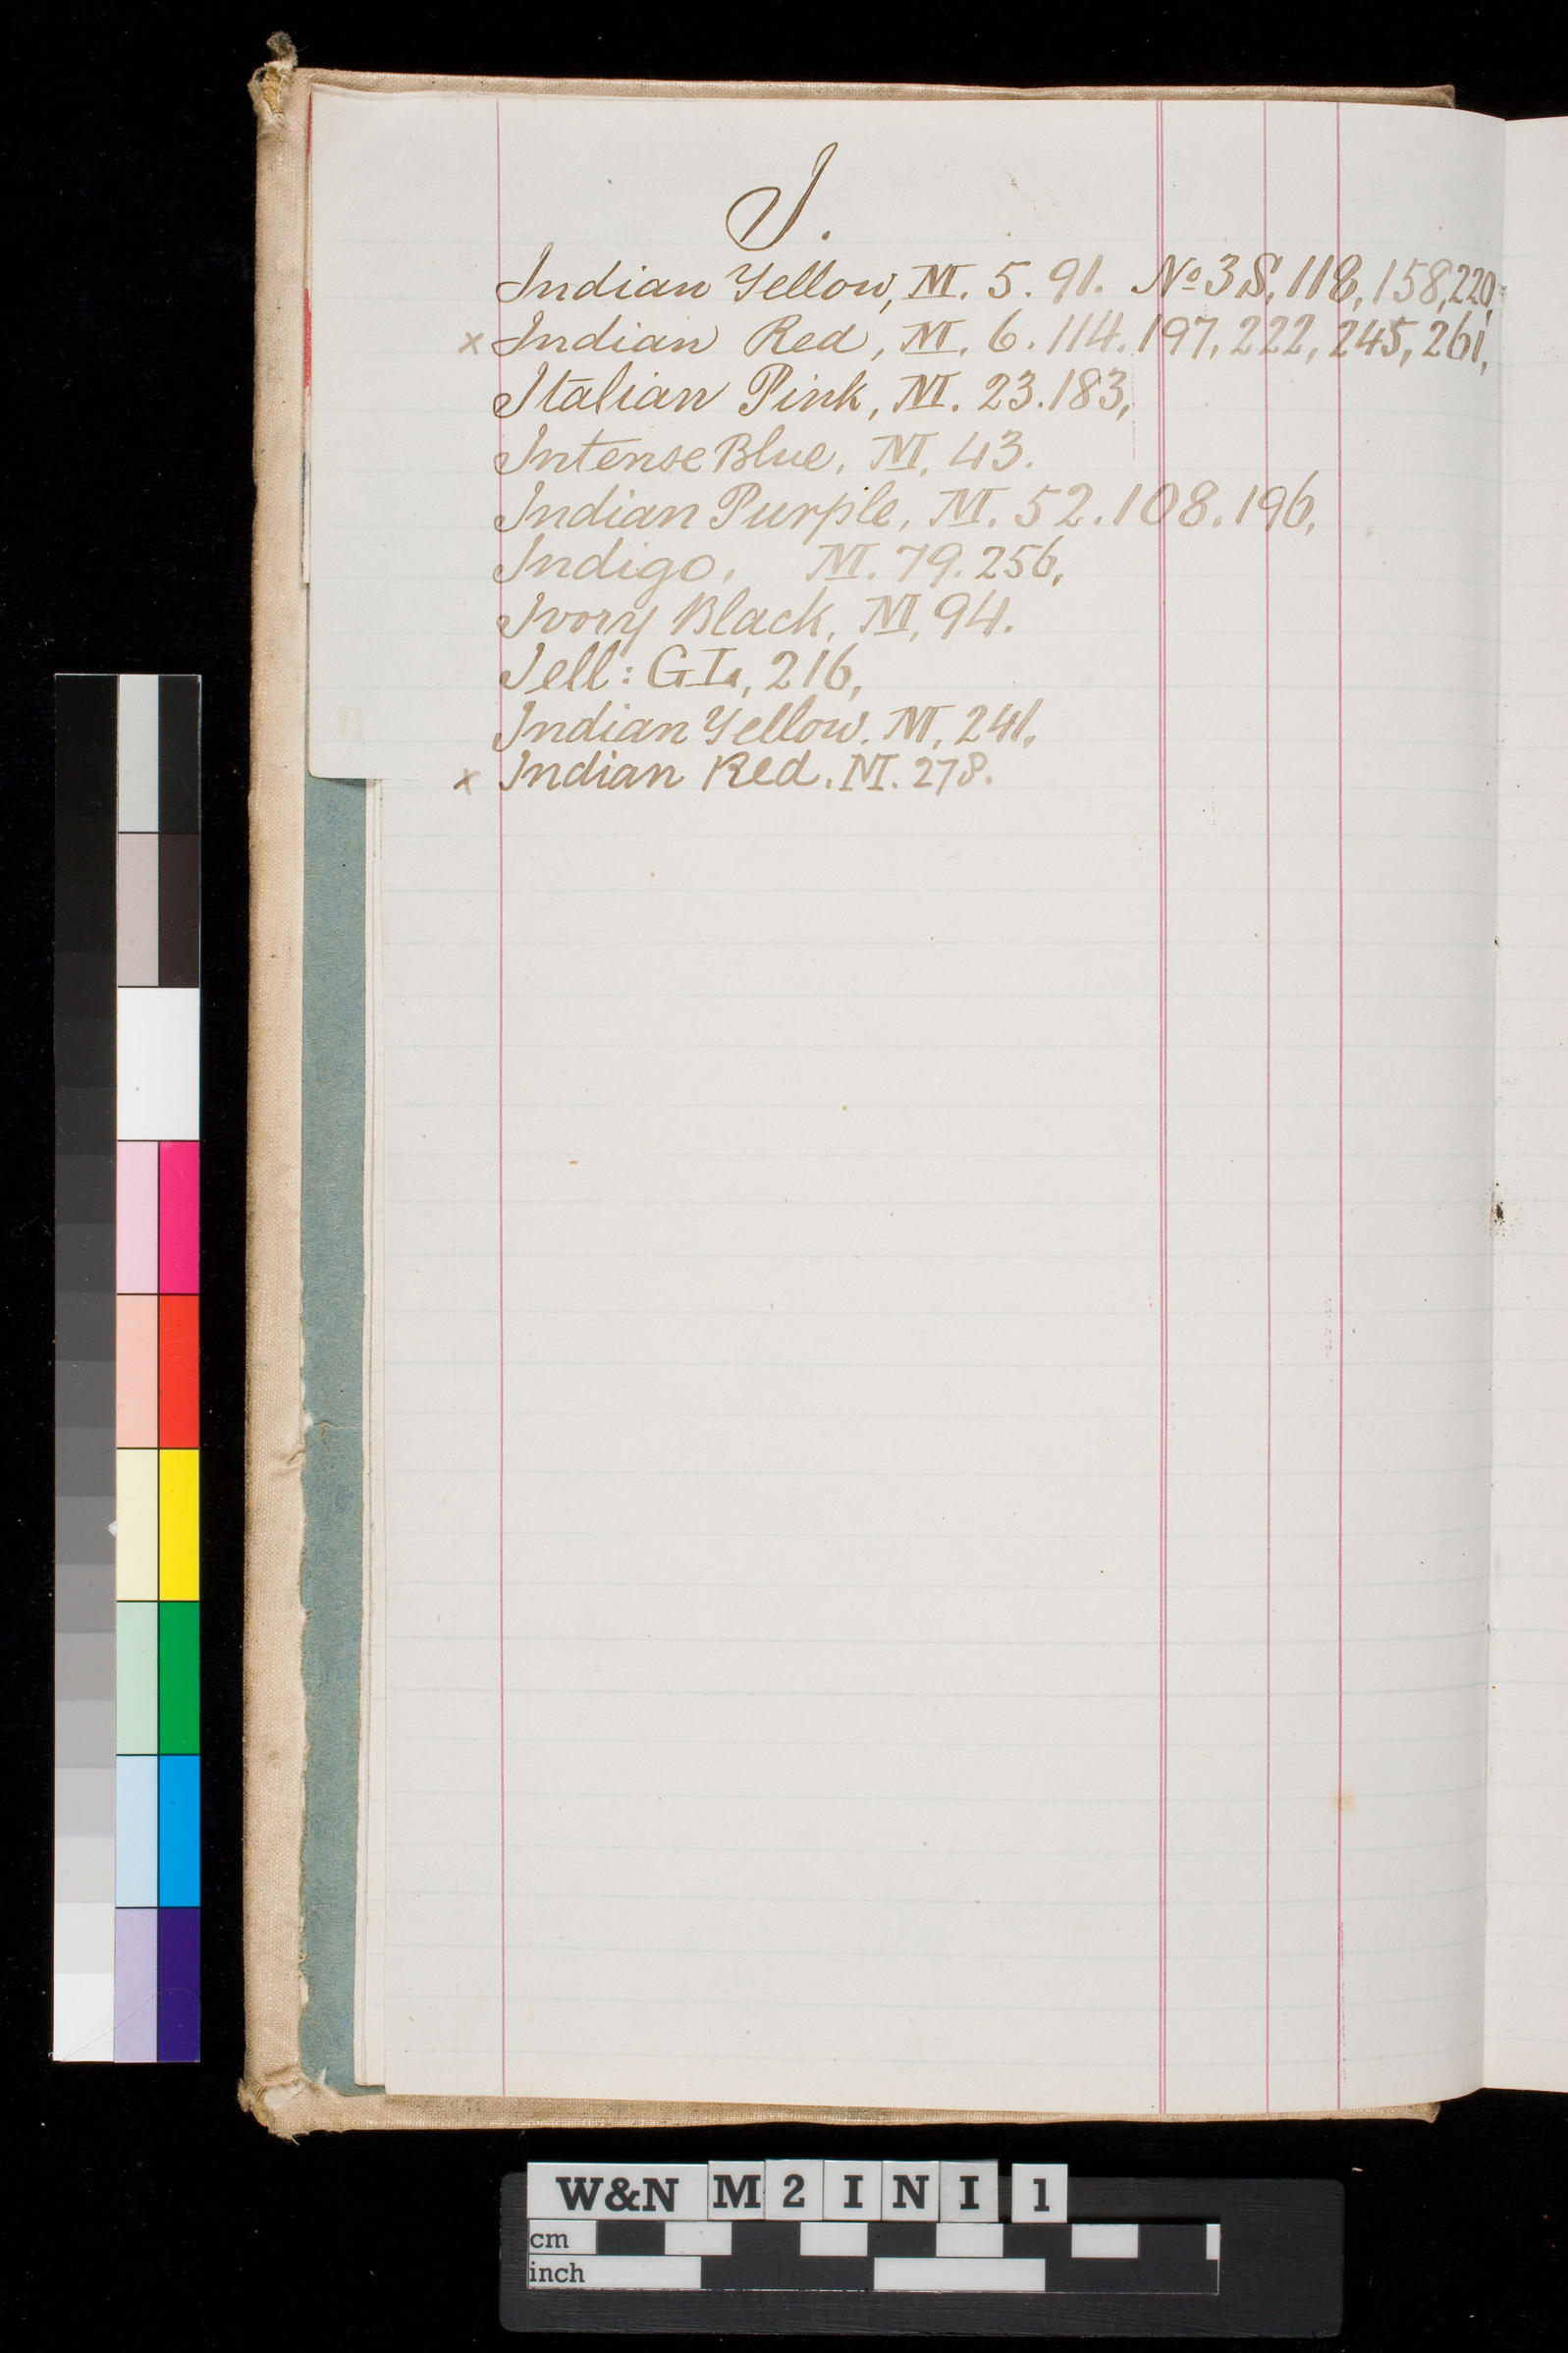 I.
Indian Yellow, M. 5. 91. No 3 S, 118, 158, 220,
x Indian Red, M. 6. 114. 197, 222, 245, 261,
Italian Pink, M. 23. 183,
Intense Blue, M, 43.
Indian Purple, M. 52. 108. 196,
Indigo, M. 79. 256,
Ivory Black, M, 94.
Jell: 216,
Indian Yellow. M, 241,
x Indian Red. M. 278.
W&N M 2 I N I 1
cm
inch